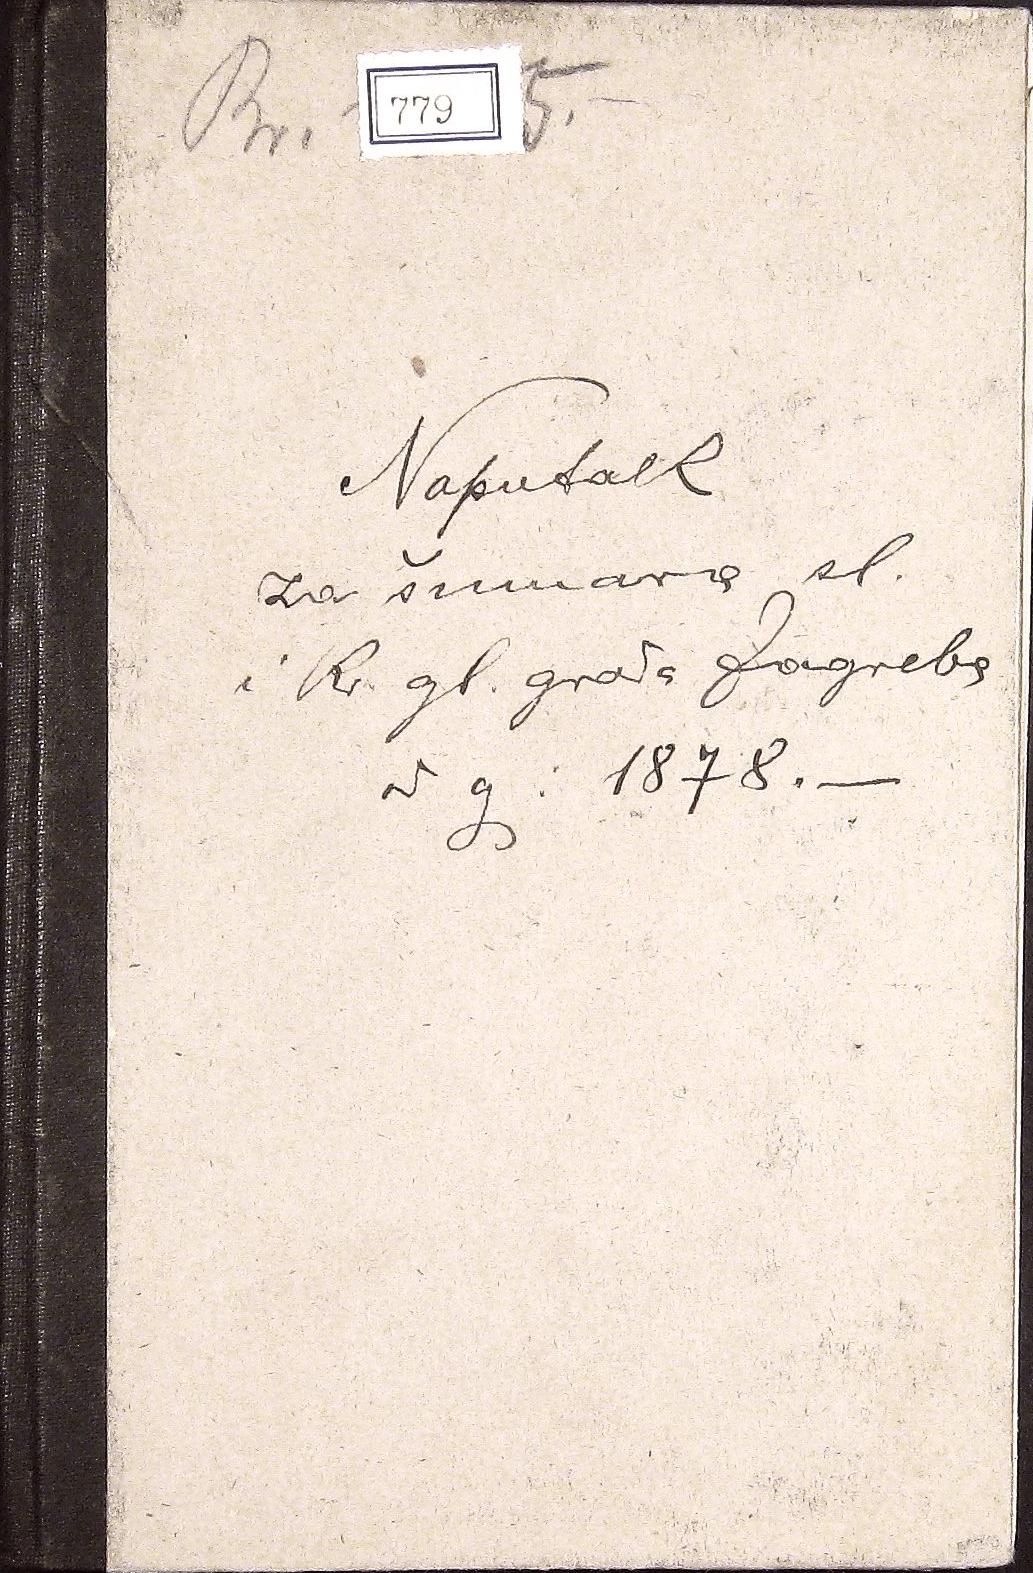 Br. 5.-
779
Naputak
za šumara sl.
i kr. gl. grada Zagreba
od g: 1878.—